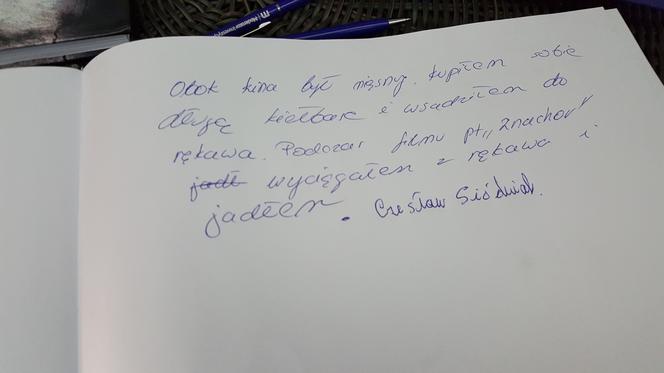 Obok kina był mięsny. Kupiłem sobie
długą kiełbasę i wsadziłem do
rękawa. Podczas filmu pt „Znachor"
jadł wyciągałem z rękawa i
jadłem. Czesław